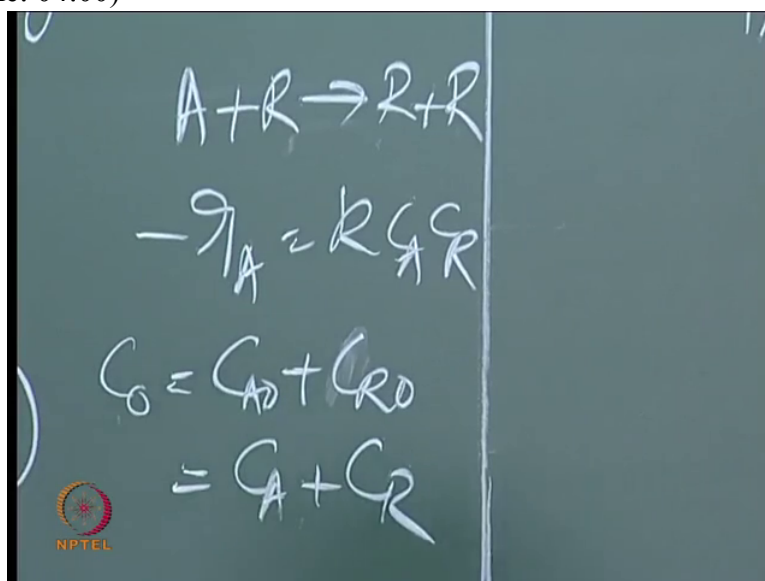 A+R→R+R
-r_A = k C_A C_R
C_0 = C_A0 + C_R0
= C_A + C_R
NPTEL